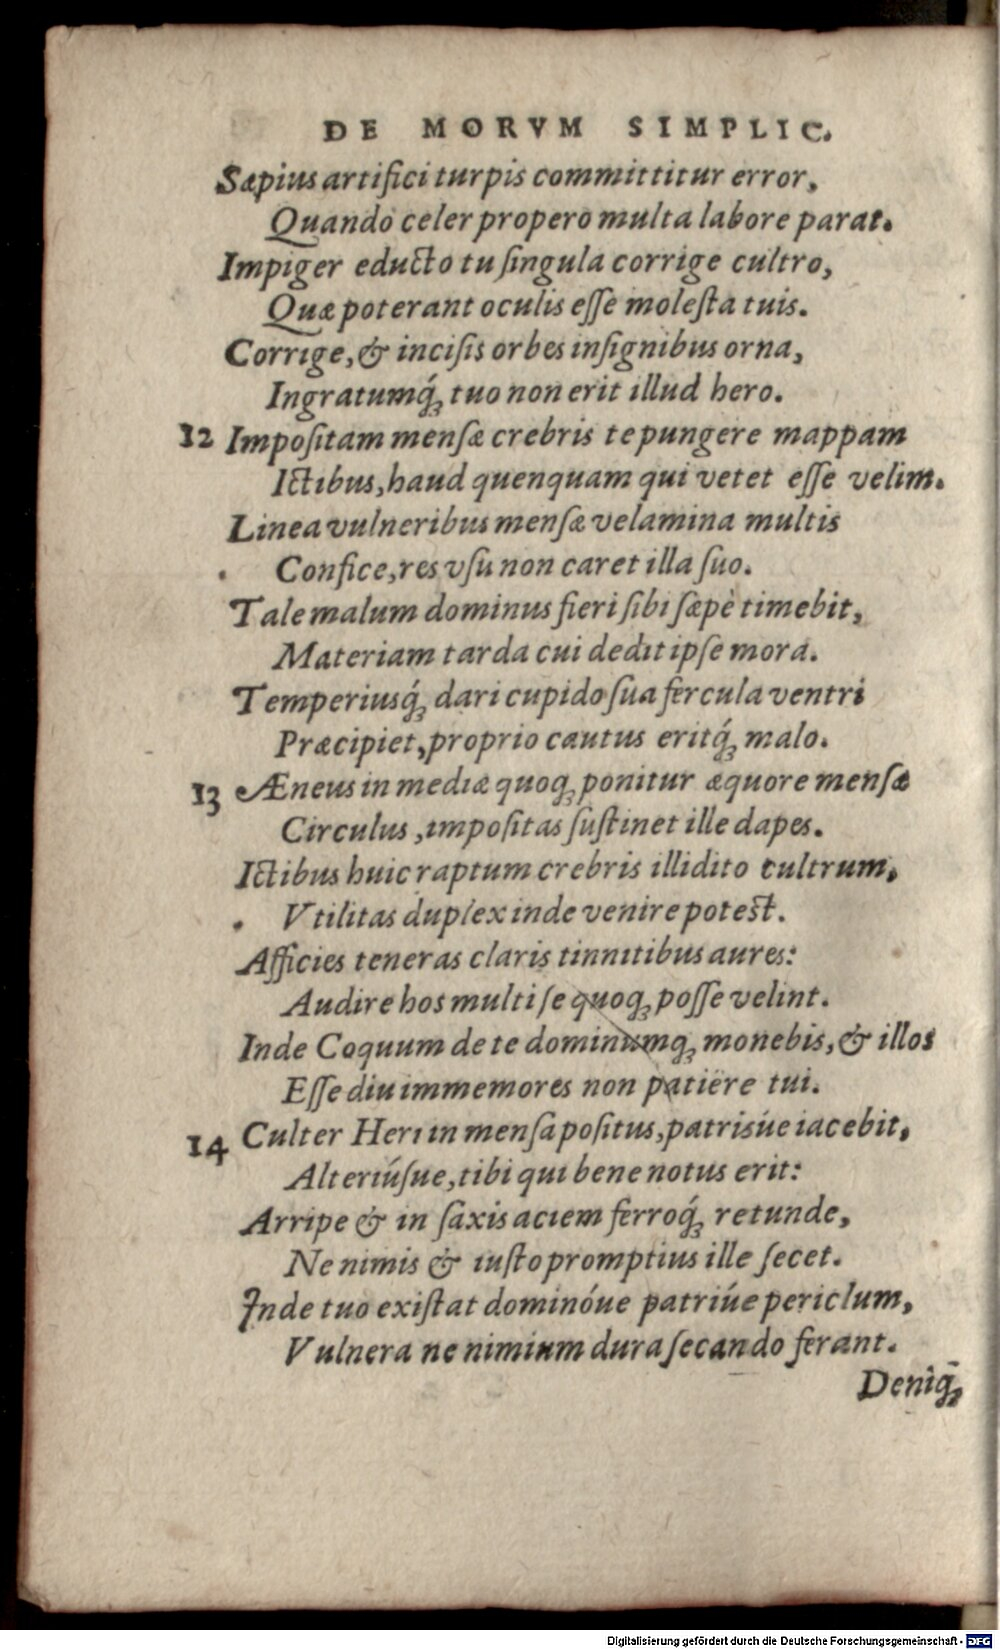 DE MORVM SIMPLIC.
Sæpius artifici turpis committitur error,
Quando celer propero multa labore parat.
Impiger educto tu ſingula corrige cultro,
Quæ poterant oculis eſſe moleſta tuis.
Corrige, & inciſis orbes inſignibus orna,
Ingratumq́ꝫ tuo non erit illud hero.
12 Impoſitam menſæ crebris te pungere mappam
Ictibus, haud quenquam qui vetet eſſe velim.
Linea vulneribus menſæ velamina multis
Confice, res vſu non caret illa ſuo.
Tale malum dominus fieri ſibi ſæpè timebit,
Materiam tarda cui dedit ipſe mora.
Temperiusq́ꝫ dari cupido ſua fercula ventri
Præcipiet, proprio cautus eritq́ꝫ malo.
13 Æneus in mediæ quoqꝫ ponitur æquore menſæ
Circulus, impoſitas ſuſtinet ille dapes.
Ictibus huic raptum crebris illidito cultrum,
Vtilitas duplex inde venire poteſt.
Afficies teneras claris tinnitibus aures:
Audire hos multi ſe quoqꝫ poſſe velint.
Inde Coquum de te dominumqꝫ monebis, & illos
Eſſe diu immemores non patiêre tui.
14 Culter Heri in menſa poſitus, patrisúe iacebit,
Alteriúſue, tibi qui bene notus erit:
Arripe & in ſaxis aciem ferroq́ꝫ retunde,
Ne nimis & iuſto promptius ille ſecet.
Inde tuo exiſtat dominóue patriúe periclum,
Vulnera ne nimium dura ſecando ferant.
Deniqꝫ
Digitalisierung gefördert durch die Deutsche Forschungsgemeinschaft - DFG